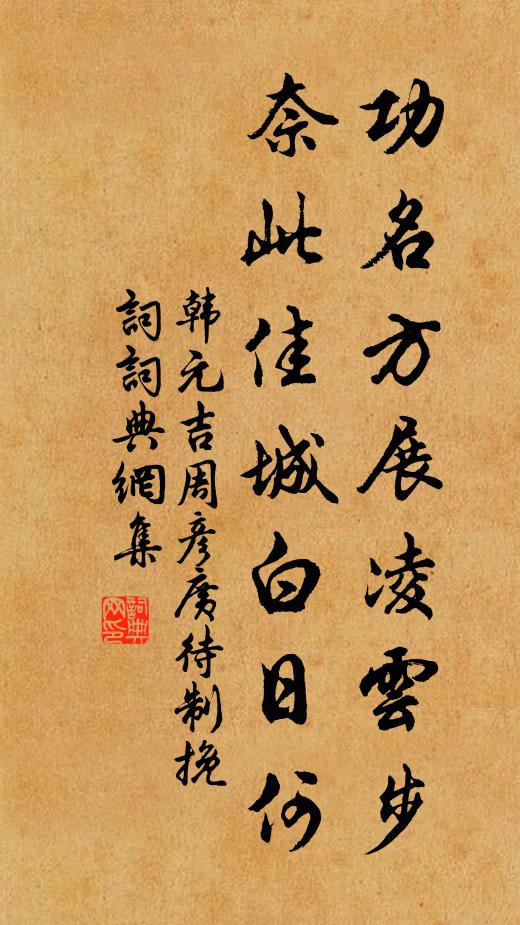 功名方展凌雲步
奈此佳城白日何
韩元吉周彦廣待制挽
詞詞典網集
詞典网印